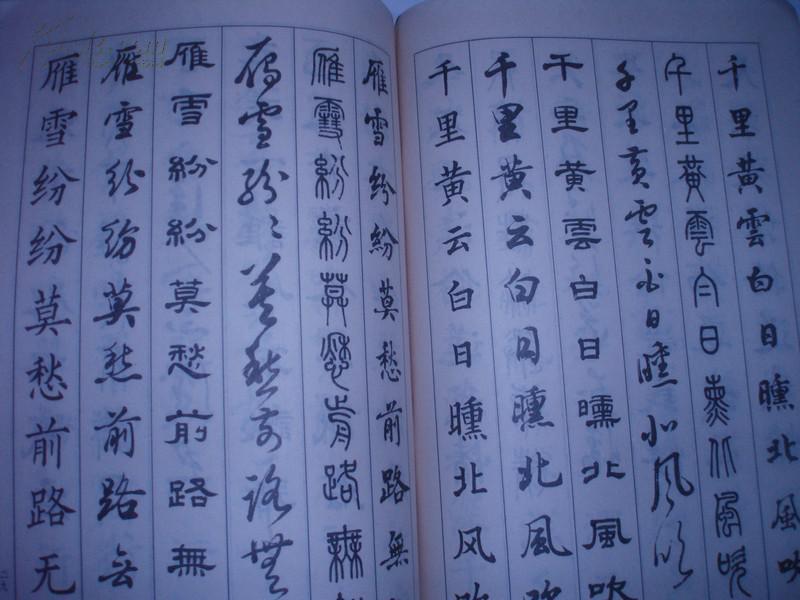 千里黃雲白日曛北風吹
千里黃雲白日熏北風吹
千里黃雲白日曛北風吹
千里黃雲白日曛北風吹
千里黄云白日曛北風吹
千里黄云白日曛北风吹
雁雪紛紛莫愁前路無
雁雪紛紛莫愁前路無
雁雪紛〻莫愁前路無
雁雪紛紛莫愁前路無
雁雪紛紛莫愁前路無
雁雪纷纷莫愁前路无